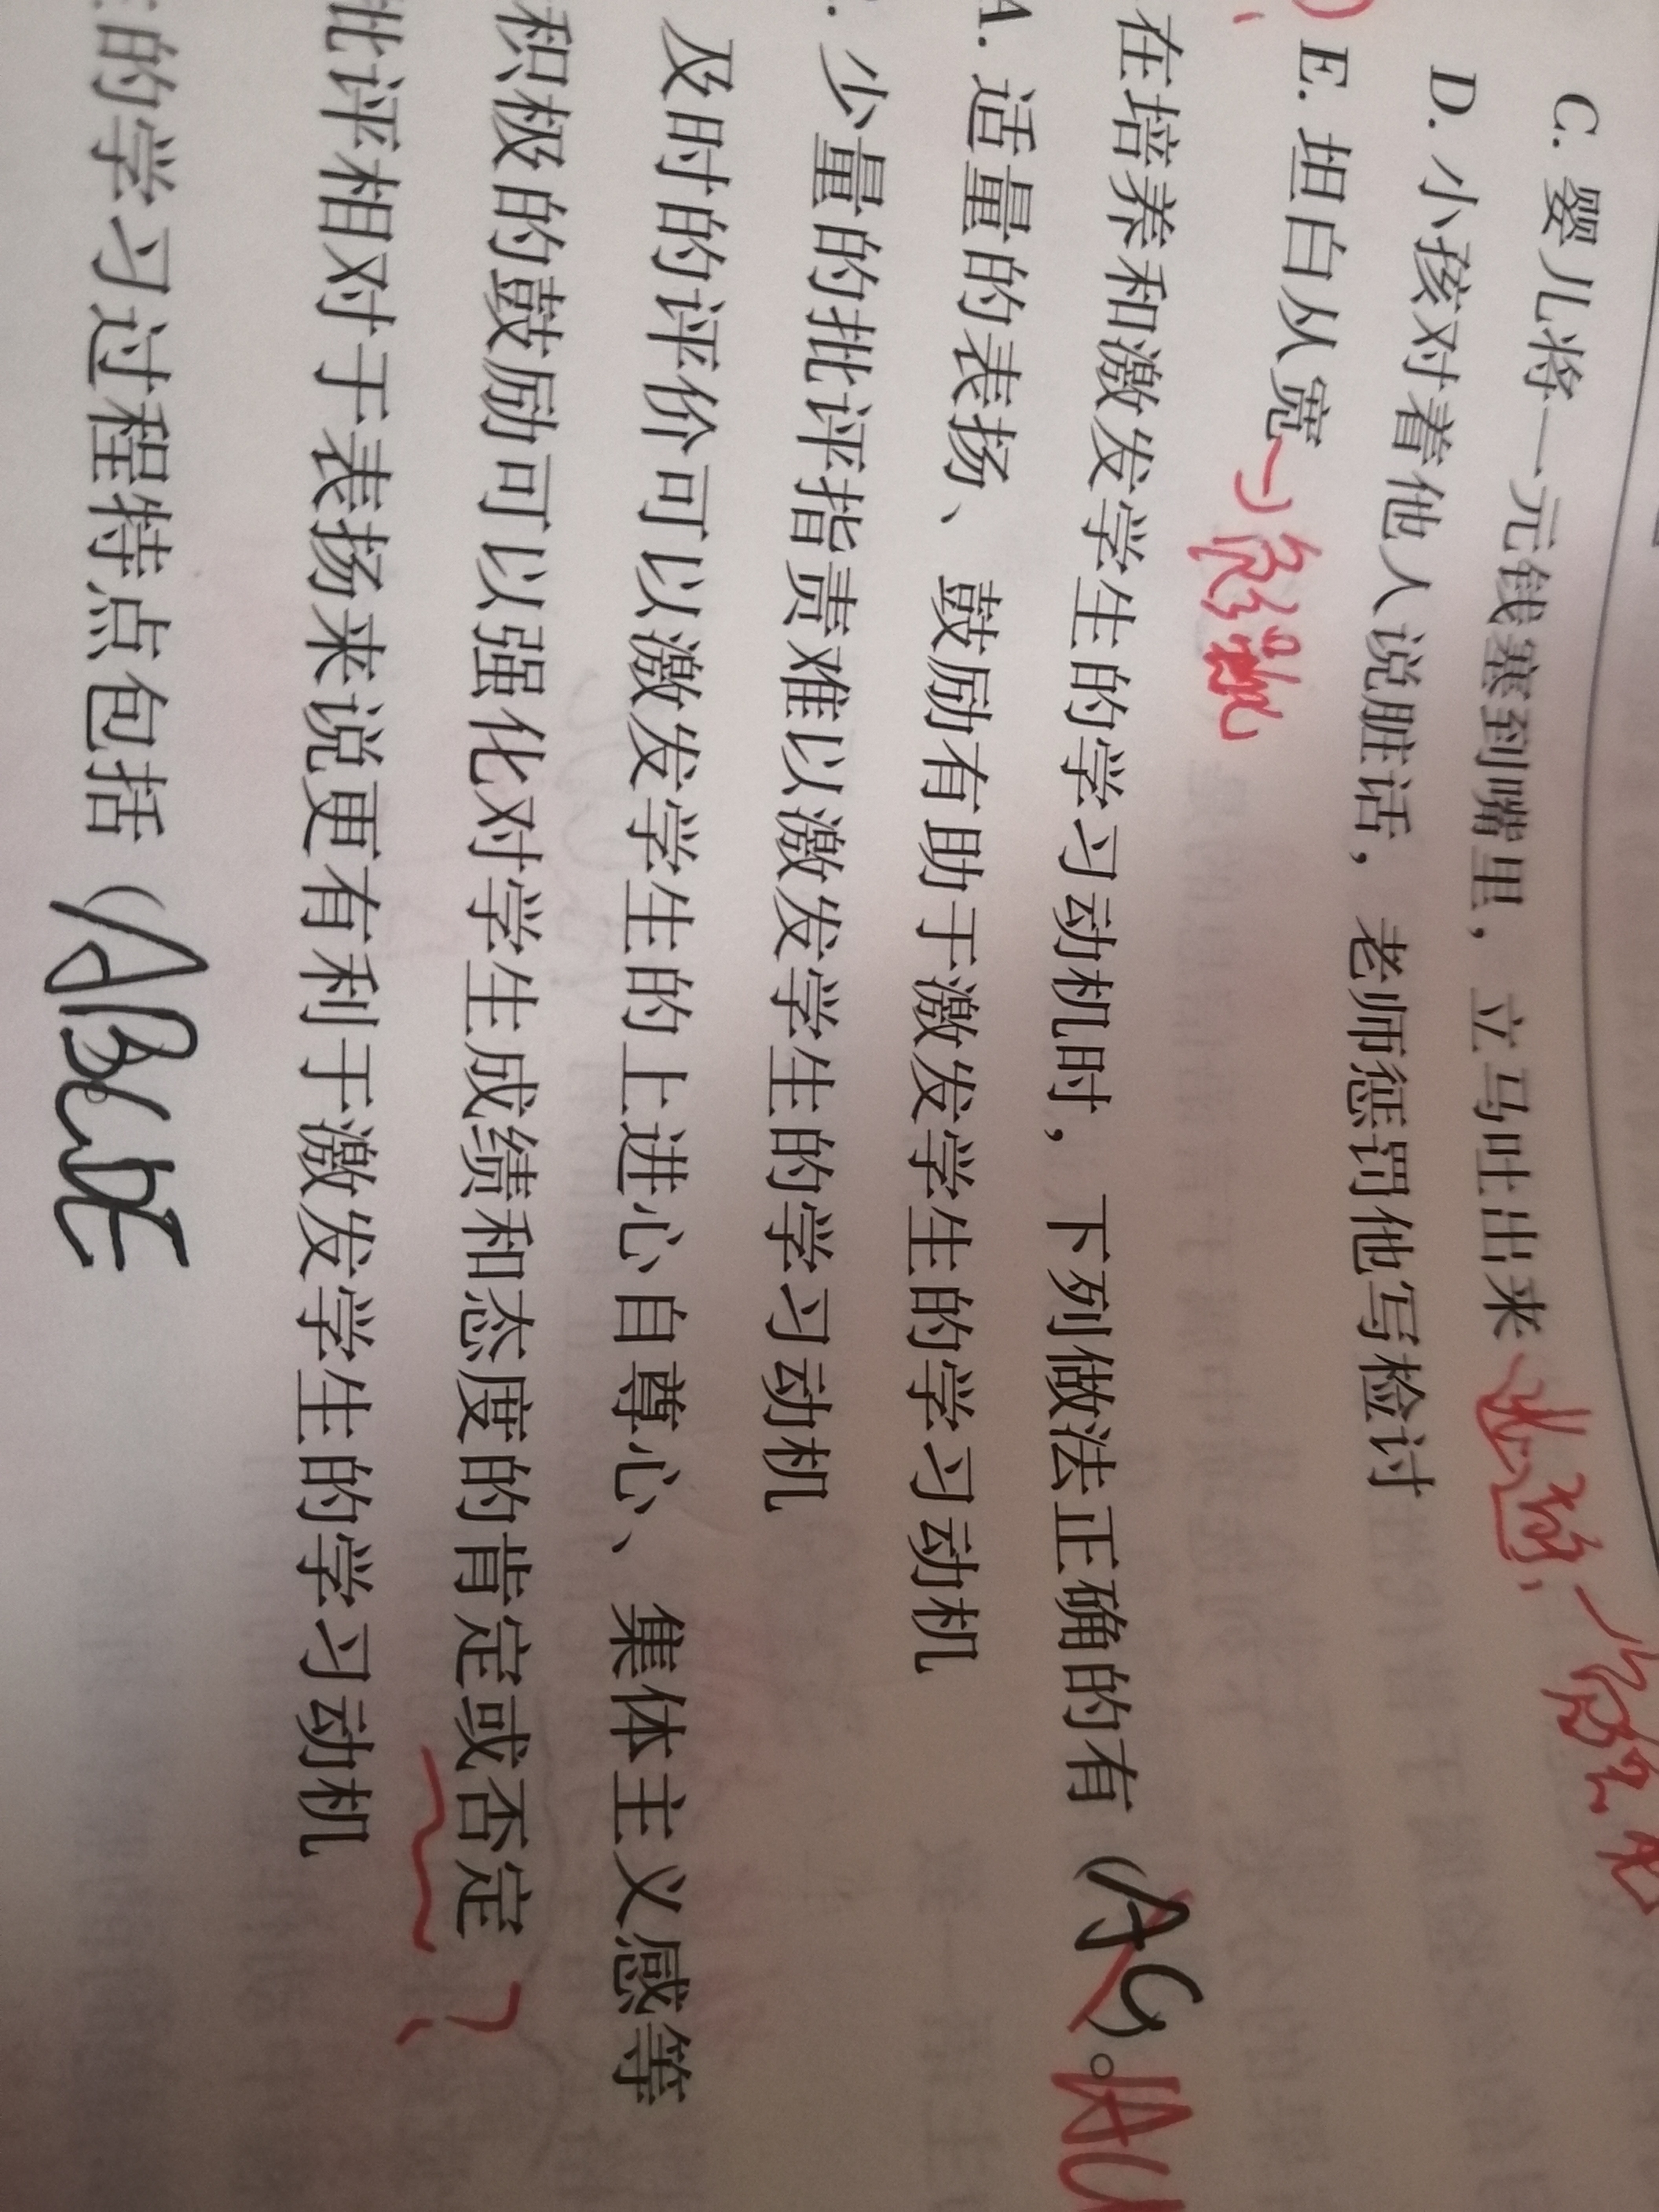 C. 婴儿将一元钱塞到嘴里，立马吐出来
D. 小孩对着他人说脏话，老师惩罚他写检讨
E. 坦白从宽
在培养和激发学生的学习动机时，下列做法正确的有（AC）。
A. 适量的表扬、鼓励有助于激发学生的学习动机
少量的批评指责难以激发学生的学习动机
及时的评价可以激发学生的上进心自尊心、集体主义感等
积极的鼓励可以强化对学生成绩和态度的肯定或否定 ?
批评相对于表扬来说更有利于激发学生的学习动机
的学习过程特点包括（ABCDE